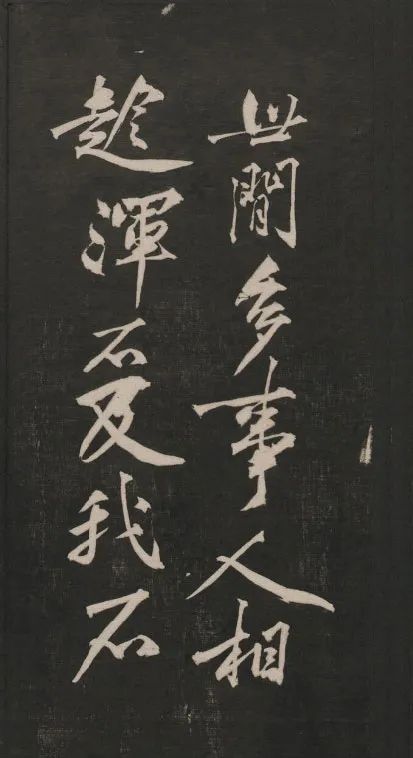 世間多事人相
趁渾不及我不